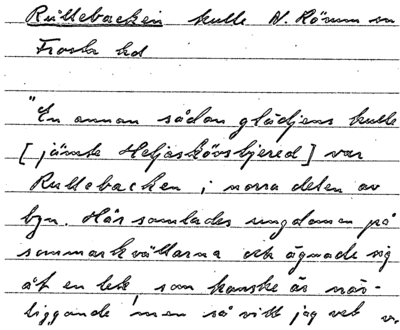 Rullebacken kulle N. Rörum sn
Frosta hd
"En annan sådan glädjens kulle
[jämte Heljaskövsbjered] var
Rullebacken i norra delen av
byn. Här samlades ungdomen på
sommarkvällarna och ägnade sig
åt en lek, som kanske är när-
liggande men så vitt jag vet v.